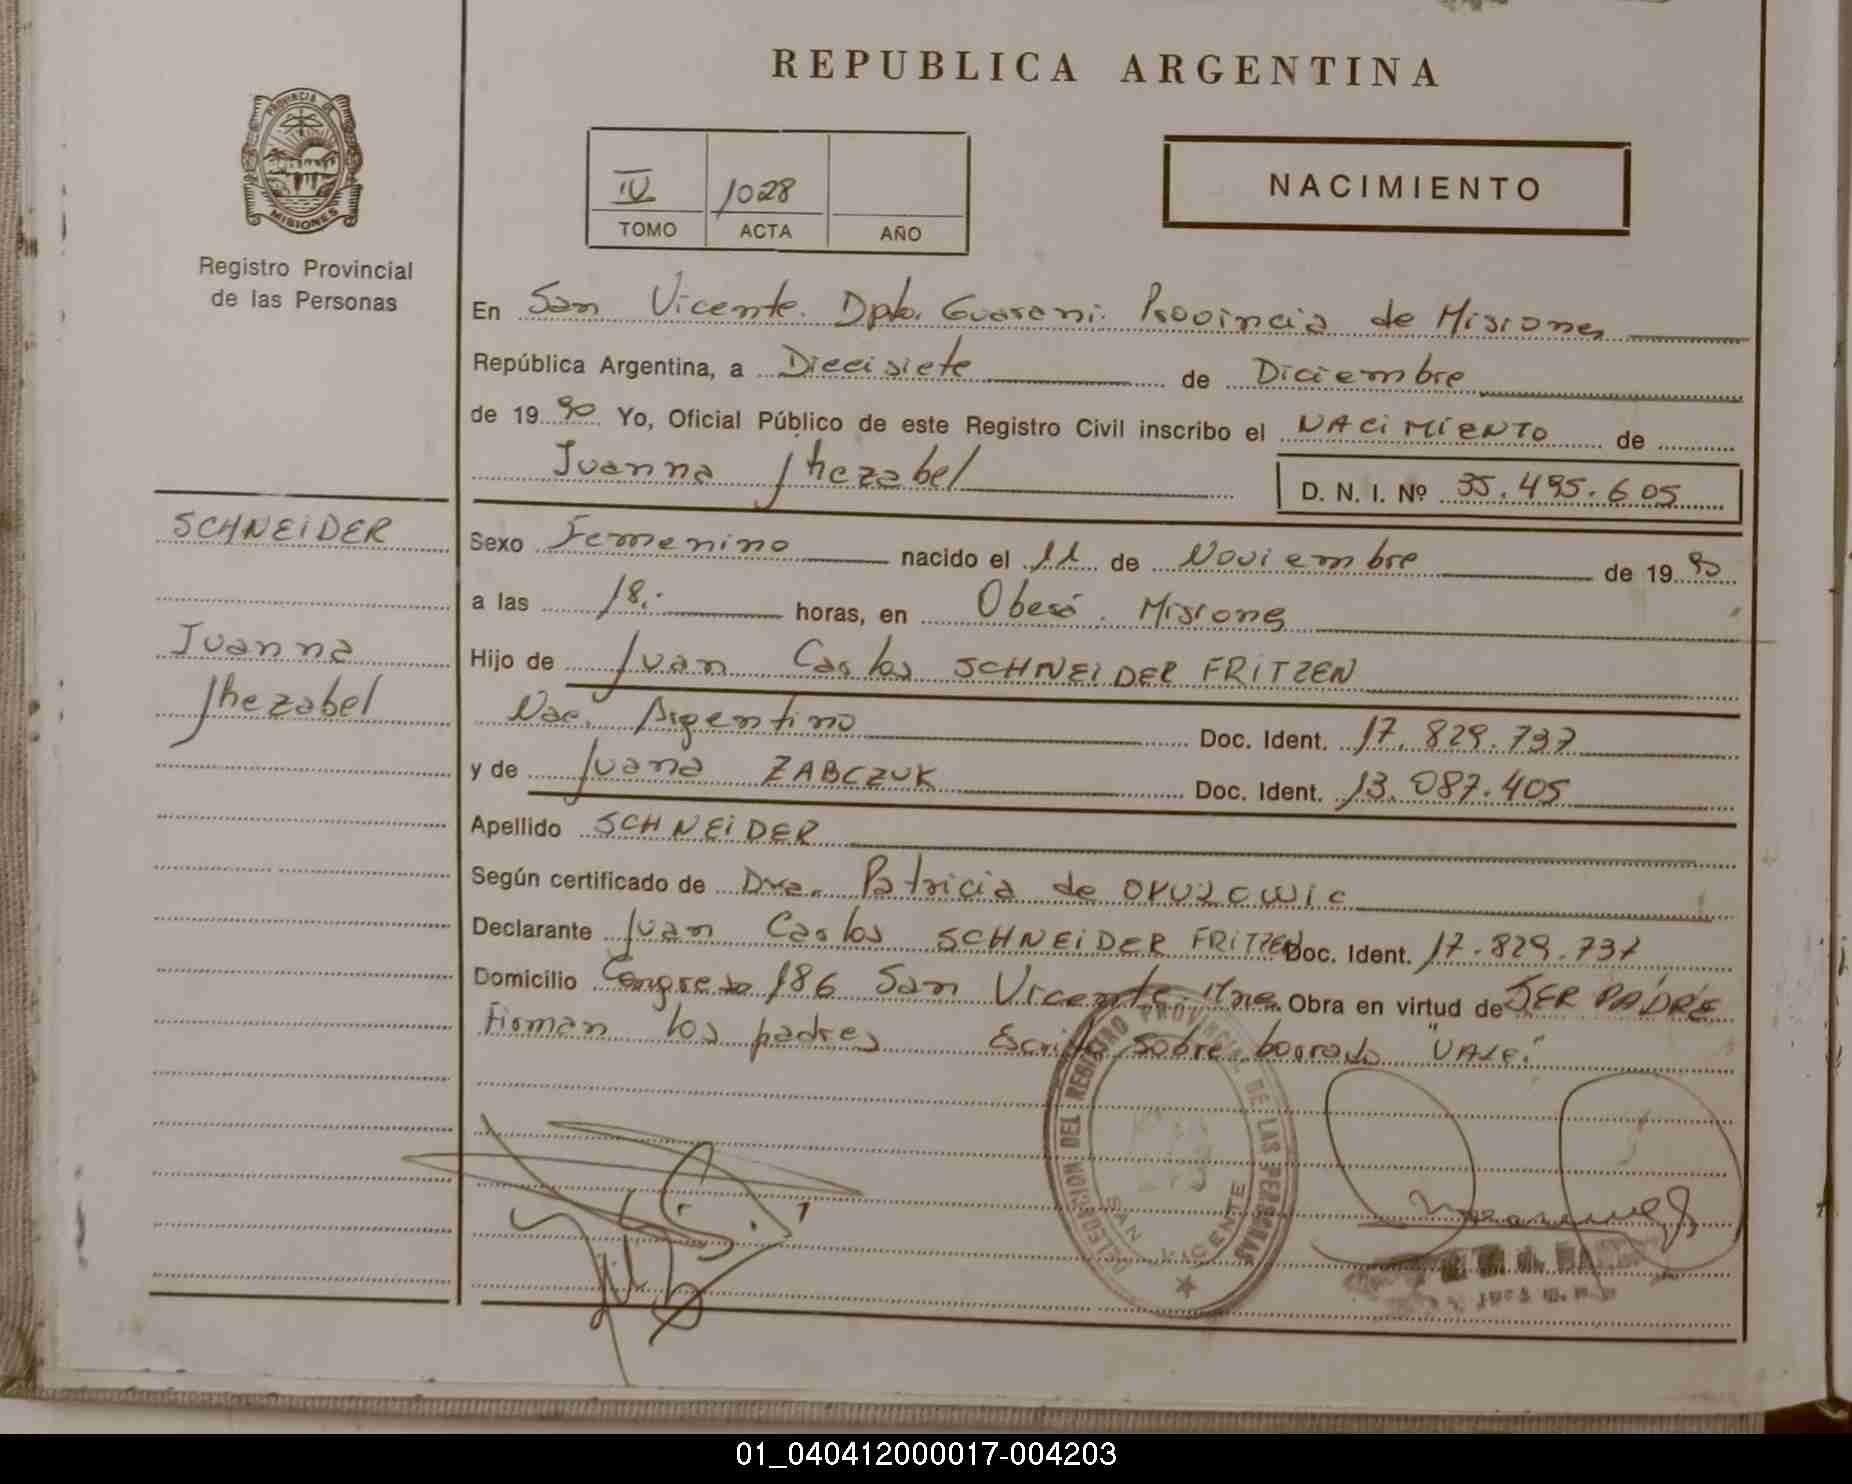 REPUBLICA ARGENTINA
PROVINCIA DE
MISIONES
Registro Provincial
de las Personas
IV 1028
TOMO ACTA AÑO
NACIMIENTO
En San Vicente. Dpto. Guarani. Provincia de Misiones
República Argentina, a Diecisiete de Diciembre
de 19 90 Yo, Oficial Público de este Registro Civil inscribo el NACIMIENTO de
Juanna Jhezabel D. N. I. Nº 35.495.605
SCHNEIDER
Juanna
Jhezabel
Sexo Femenino nacido el 11 de Noviembre de 19 90
a las 18.- horas, en Oberá. Misiones
Hijo de Juan Carlos SCHNEIDER FRITZEN
Nac. Argentino Doc. Ident. 17.829.737
y de Juana ZABCZUK Doc. Ident. 13.087.405
Apellido SCHNEIDER
Según certificado de Dra. Patricia de
Declarante Juan Carlos SCHNEIDER FRITZEN Doc. Ident. 17.829.737
Domicilio Congreso 186 San Vicente Mnes Obra en virtud de SER PADRE
Firman los padres Escrito sobre borrado "VALE."
DELEGACION DEL REGISTRO PROVINCIAL DE LAS PERSONAS
SAN VICENTE
01_040412000017-004203